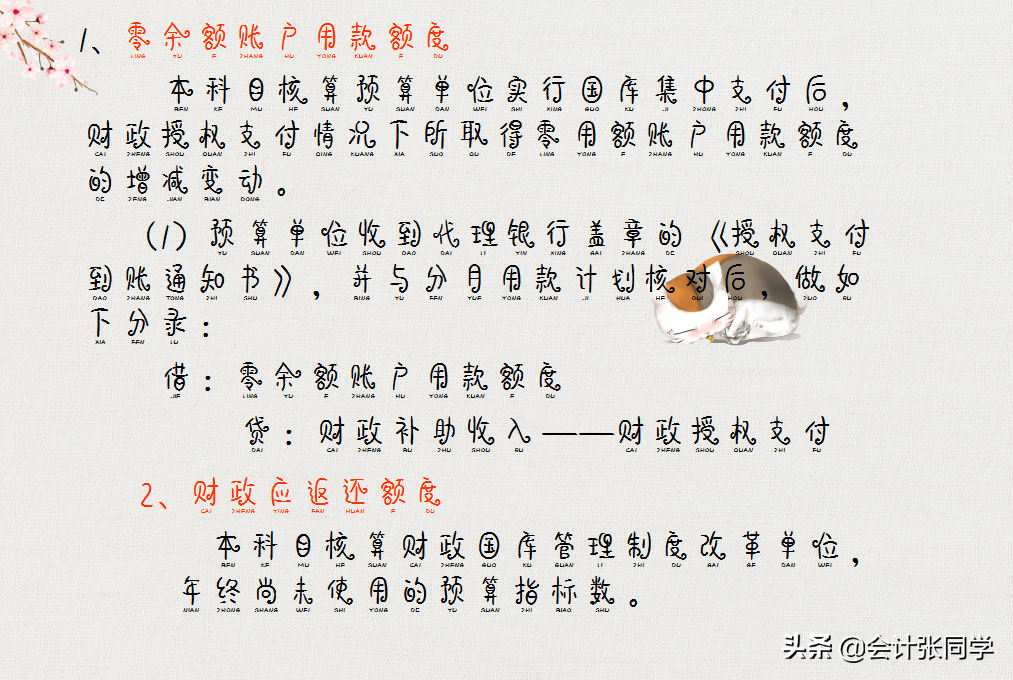 1、零余额账户用款额度
本科目核算预算单位实行国库集中支付后，
财政授权支付情况下所取得零用额账户用款额度
的增减变动。
（1）预算单位收到代理银行盖章的《授权支付
到账通知书》，并与分月用款计划核对后，做如
下分录：
借：零余额账户用款额度
贷：财政补助收入——财政授权支付
2、财政应返还额度
本科目核算财政国库管理制度改革单位，
年终尚未使用的预算指标数。
头条 @会计张同学